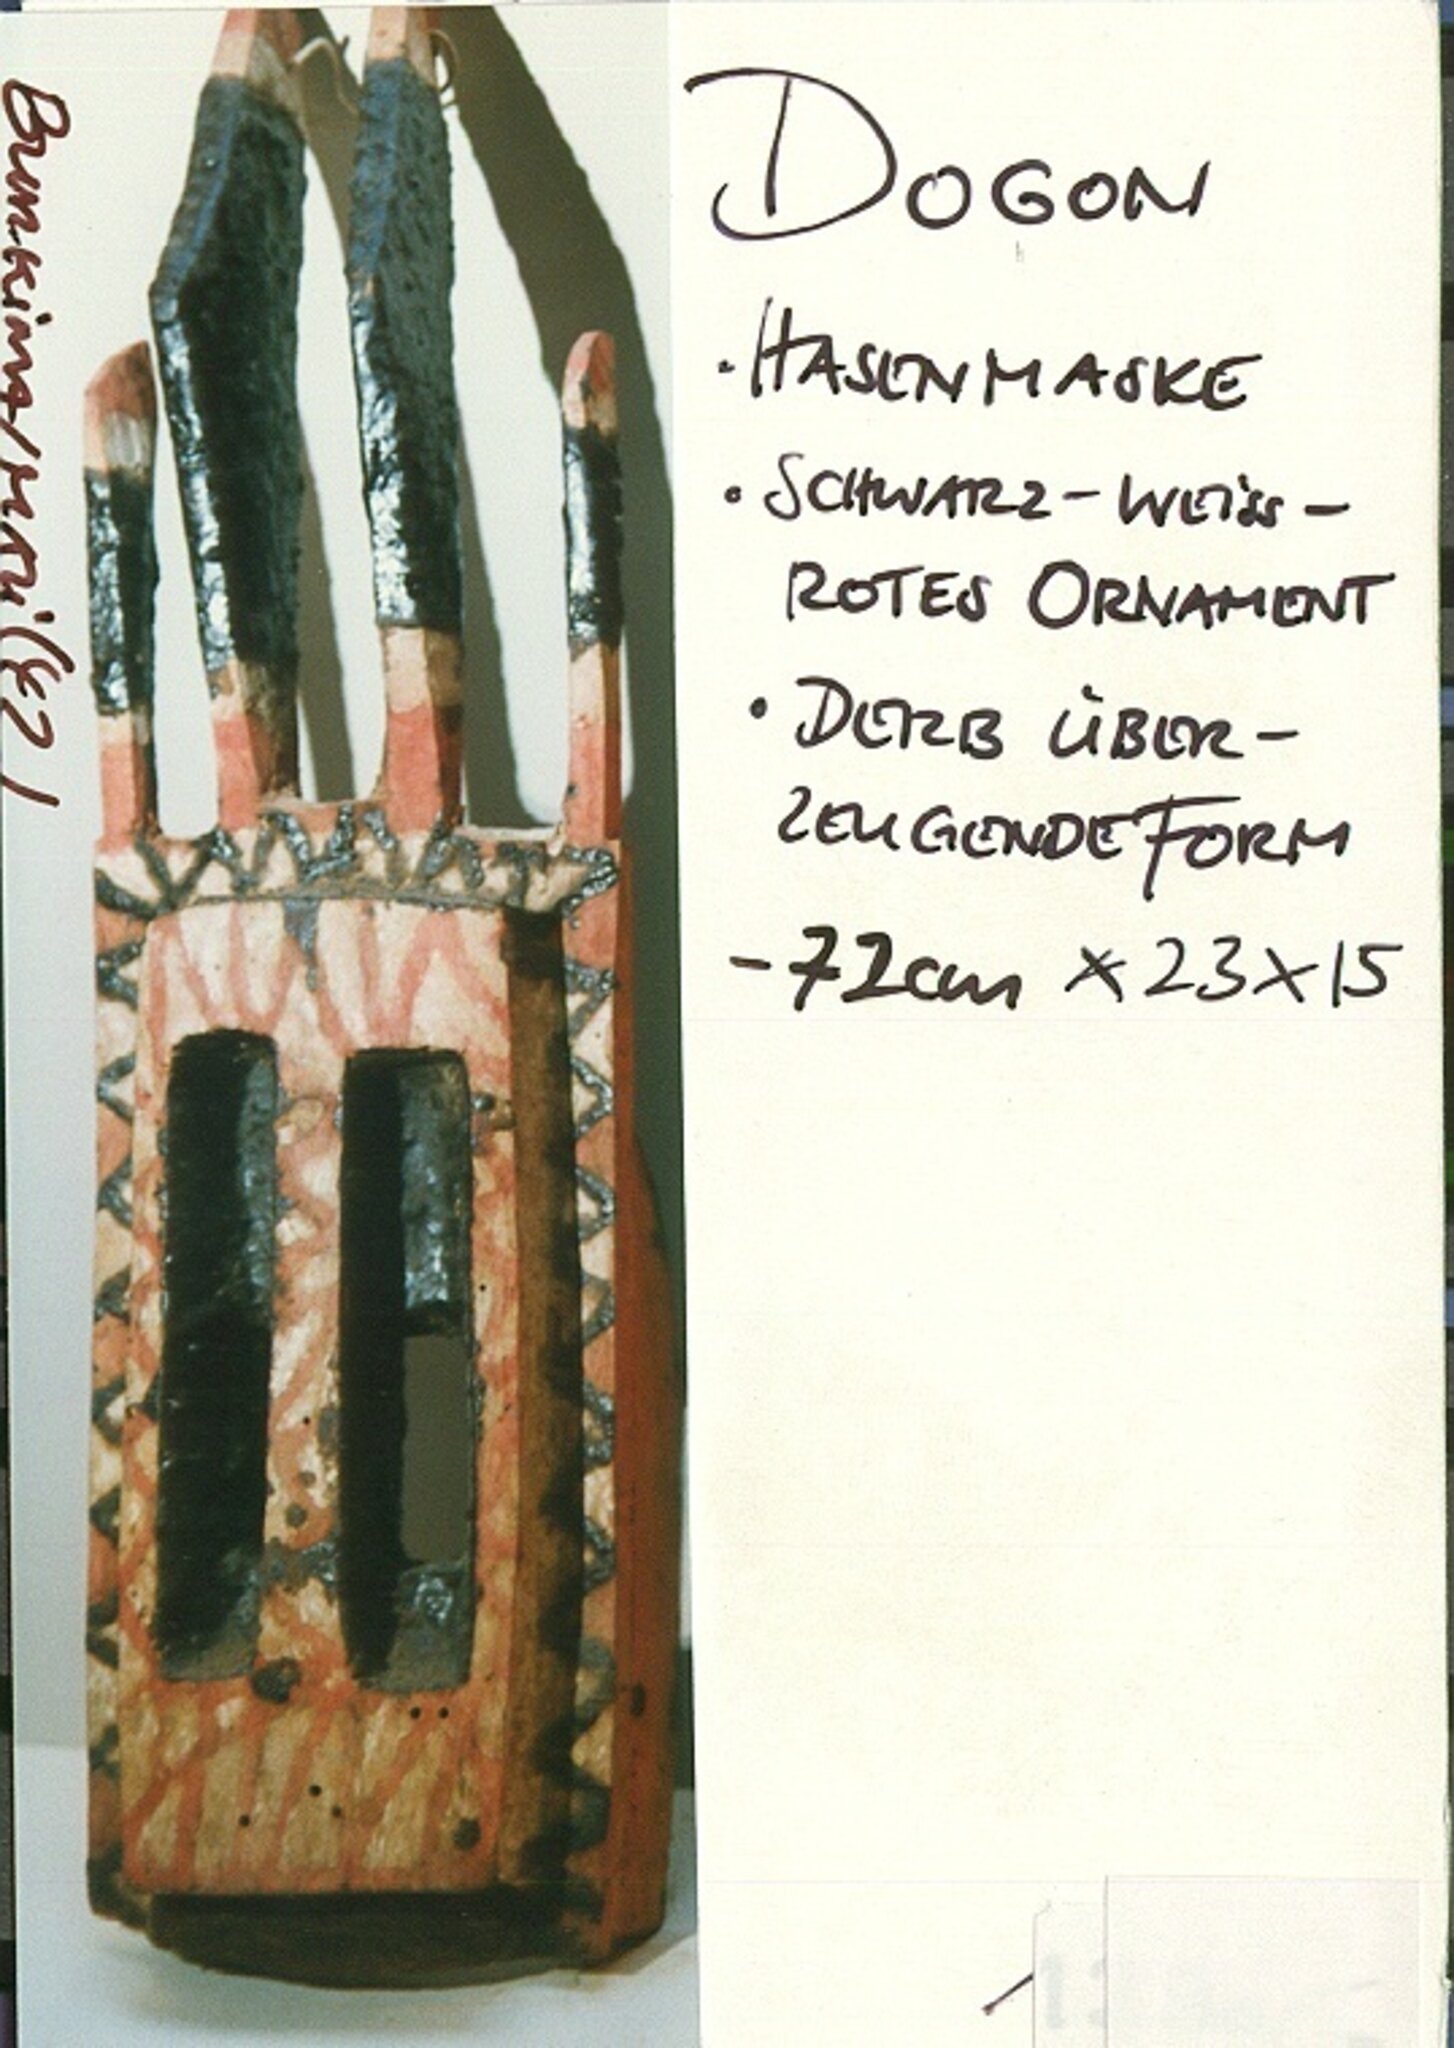 DOGON
• HASENMASKE
• SCHWARZ-WEISS-
ROTES ORNAMENT
• DERB ÜBER-
ZEUGENDE FORM
- 72cm x 23 x 15
Burkina/Mali